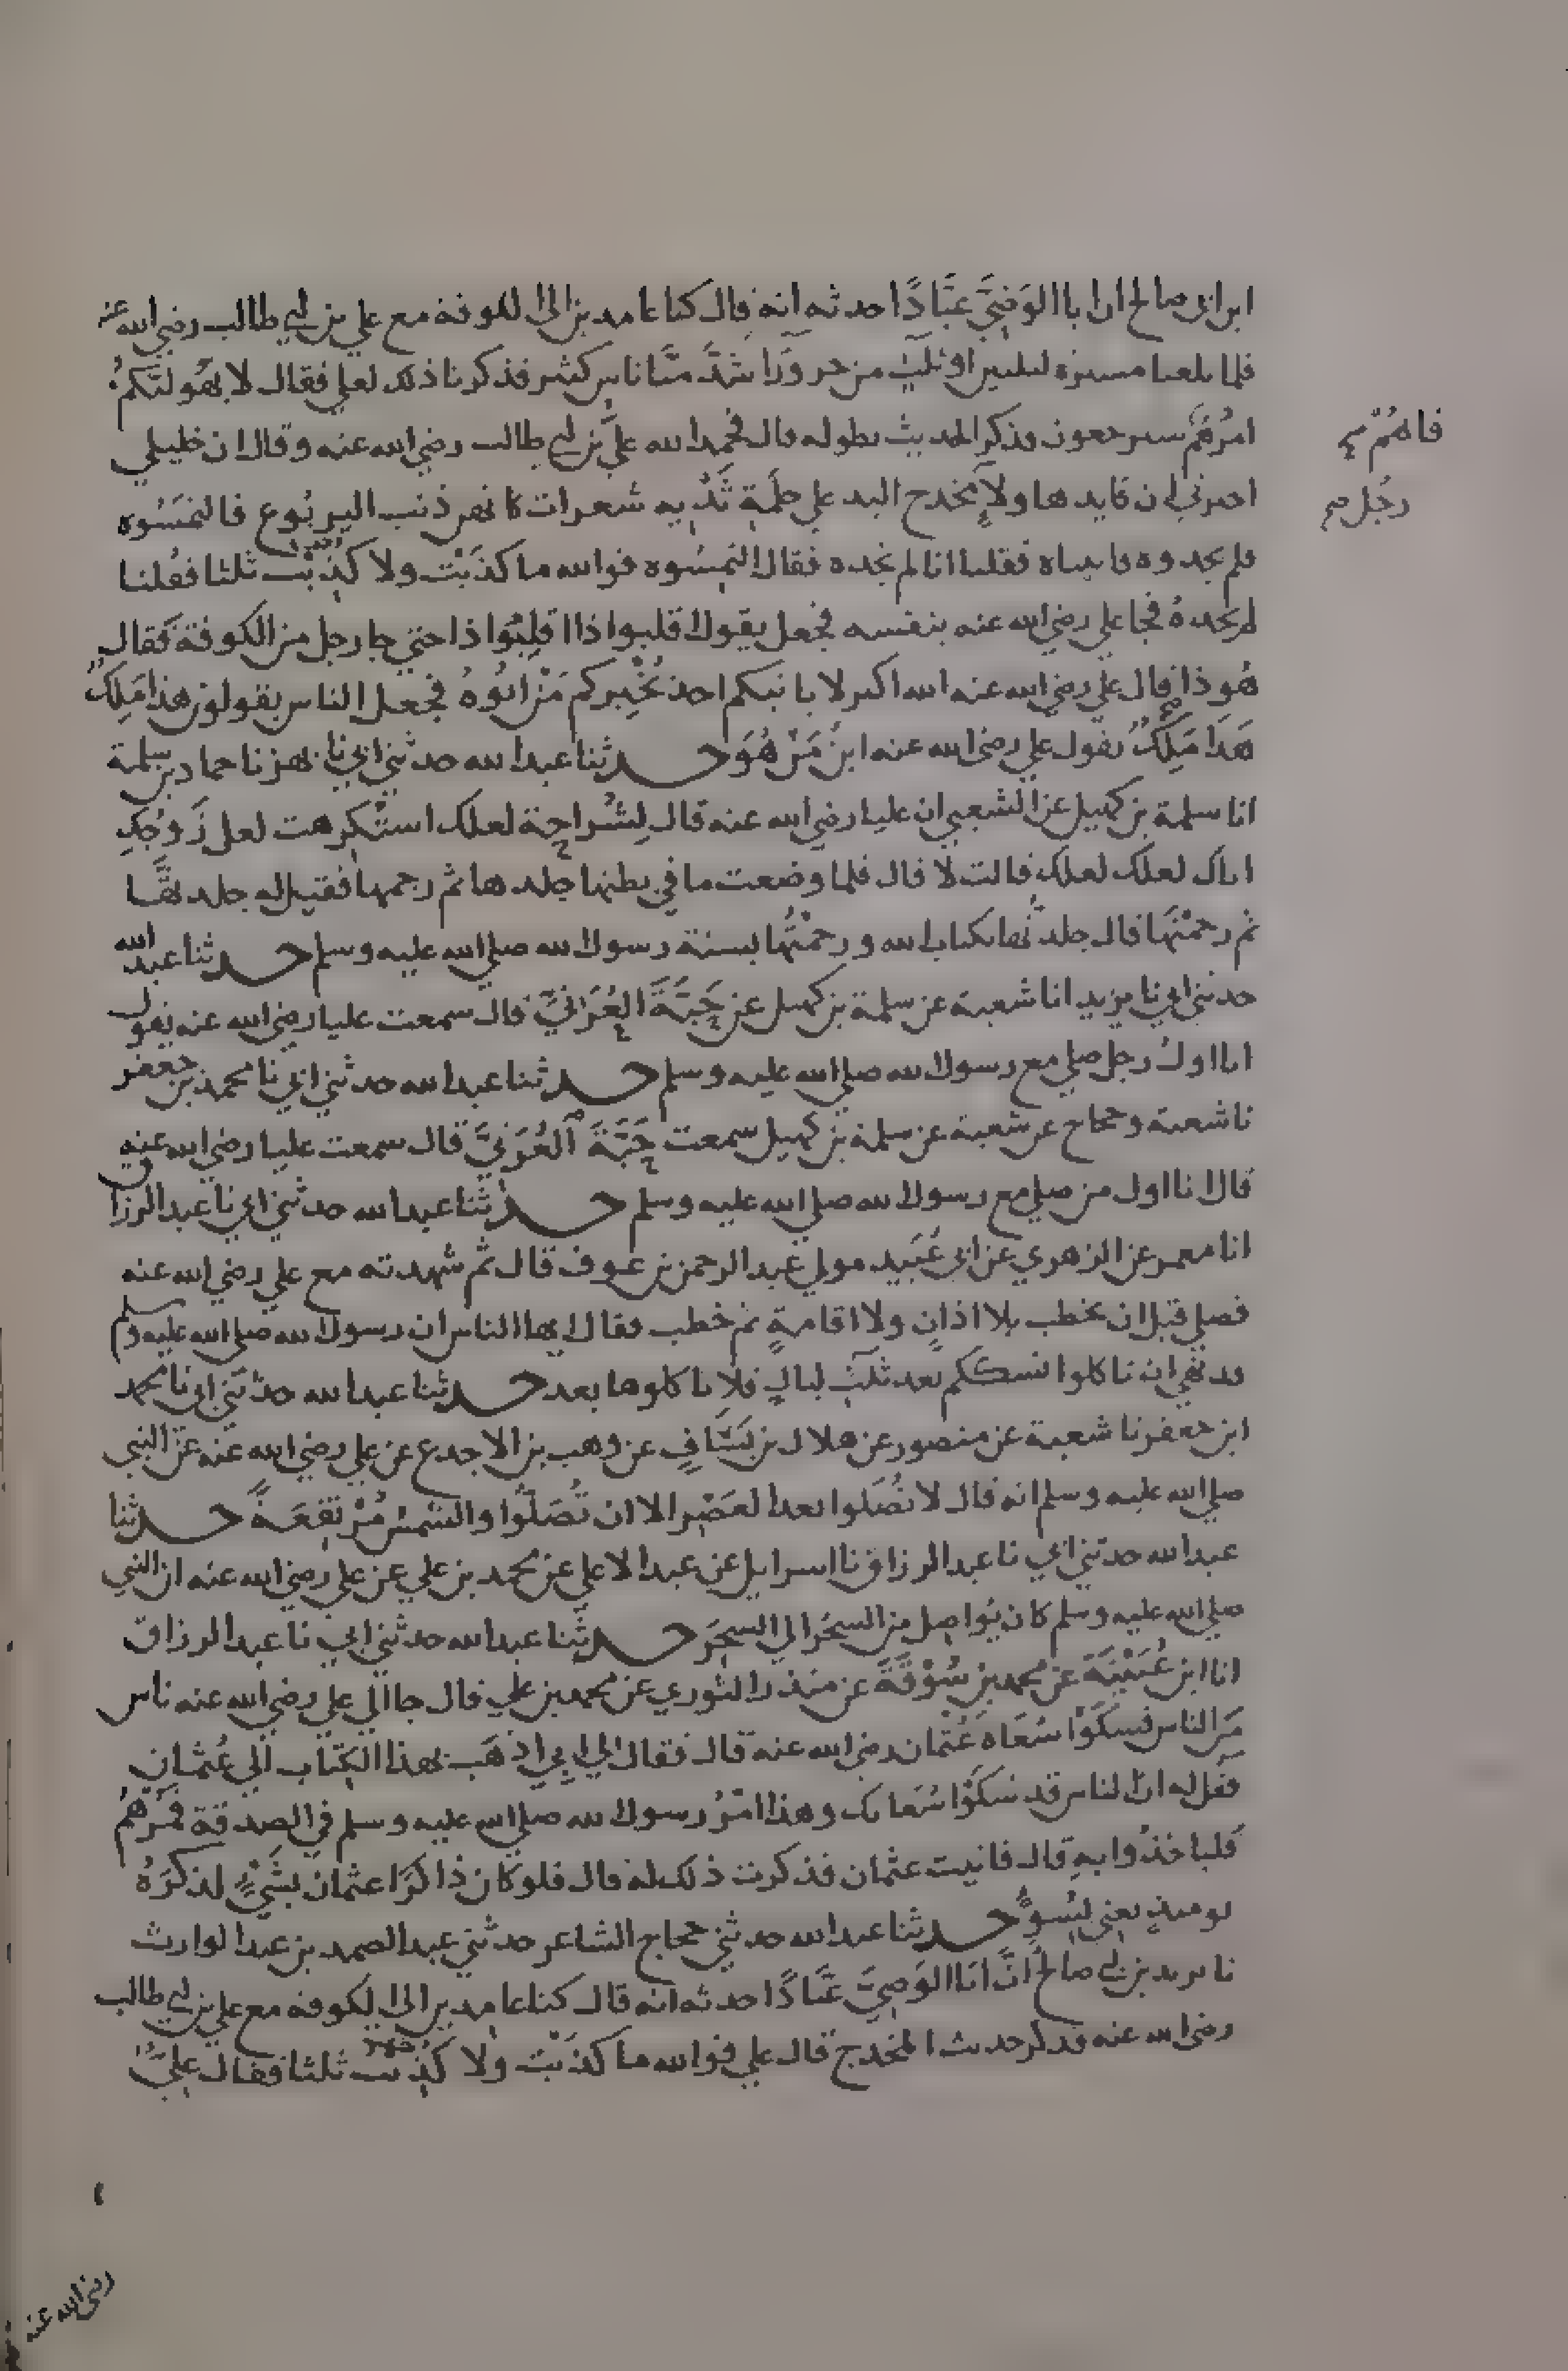 ابن ابي صالح ان ابا الوَضِيّ عَبَّادًا حدثه انه قال كنا عامدين الى الكوفة مع علي بن ابي طالب رضي الله عنه
فلما بلغنا مسيرة ليلتين او ثلث من حروراء شَذَّ منَّا ناس كثير فذكرنا ذلك لعلي فقال لا يهُولنَّكم
امرُهُم سيرجعون فذكر الحديث بطوله قال فحمد الله عليُّ بن ابي طالب رضي الله عنه وقال ان خليلي
اخبرني ان قايد هاولآء مخدج اليد علي حلَمة ثَدْيه شعرات كانهن ذنب اليربُوع فالتمسُوه
فلم يجدوه فاتيناه فقلنا انا لم نجده فقال التمِسُوه فوالله ما كذَبْت ولا كُذِبْت ثلثا فقُلنا
لم نجدهُ فجا علي رضي الله عنه بنفسه فجعل يقول اقلبوا ذا اقلِبُوا ذا حتي جا رجل من الكوفة فقال
هُو ذا قال علي رضي الله عنه الله اكبر لا ياتيكم احد يُخْبِركم مَنْ ابُوهُ فجعل الناس يقولون هذا مَلِكٌ
هَذَا مَلِكٌ يقول علي رضي الله عنه ابنُ مَنْ هُوَ حدثنا عبد الله حدثني ابي نا بهز نا حماد بن سلمة
انا سلمة بن كهيل عن الشعبي ان عليا رضي الله عنه قال لِشُراحة لعلك استُكرهت لعل زَوْجكِ
اتاك لعلك لعلك قالت لا قال فلما وضعت ما في بطنها جلدها ثم رجمها فقيل له جلدتهَّا
ثم رجمْتَها قال جلدتُها بكتاب الله ورجمْتُها بسنة رسول الله صلي الله عليه وسلم حدثنا عبد الله
حدثني ابي نا يزيد انا شعبة عن سلمة بن كهيل عن حَبَّةَ العُرَنيِّ قال سمعت عليا رضي الله عنه يقول
انا اولُ رجل صلي مع رسول الله صلي الله عليه وسلم حدثنا عبد الله حدثني ابي نا محمد بن جعفر
نا شعبة وحجاج عن شعبة عن سلمة بن كهيل سمعت حَبَّةَ العُرَنيَّ قال سمعت عليا رضي الله عنه
قال انا اول من صلي مع رسول الله صلي الله عليه وسلم حدثنا عبد الله حدثني ابي نا عبد الرزاق
انا معمر عن الزهري عن ابي عُبَيد مولي عبد الرحمن بن عوف قال ثم شهدته مع علي رضي الله عنه
فصلي قبل ان يخطب بلا اذانٍ ولا اقامةٍ ثم خطب فقال ايها الناس ان رسول الله صلي الله عليه وسلم
قد نهي ان تاكلوا نسككم بعد ثلثِ ليالٍ فلا تاكلوها بعد حدثنا عبد الله حدثني ابي نا محمد
ابن جعفر نا شعبة عن منصور عن هلال بن يَسَافٍ عن وهب بن الاجدع عن علي رضي الله عنه عن النبي
صلي الله عليه وسلم انه قال لا تُصَلوا بعد العَصْر الا ان تُصَلُّوا والشمسُ مُرْتفِعَةً حدثنا
عبد الله حدثني ابي نا عبد الرزاق نا اسرايل عن عبد الاعلي عن محمد بن علي عن علي رضي الله عنه ان النبي
صلي الله عليه وسلم كان يُواصِل من السحَر الي السحَر حدثنا عبد الله حدثني ابي نا عبد الرزاق
انا ابن عُيَيْنَة عن محمد بن سُوْقَةَ عن منذر الثوري عن محمد بن علي قال جا الي علي رضي الله عنه ناس
مِّن الناس فشكَوْا سُعَاه عُثْمان رضي الله عنه قال فقال لي ابي اذهَب بهذا الكِتاب الي عُثمان
فقل له ان الناس قد شكَوْا سُعَاتك وهذا امْرُ رسول الله صلي الله عليه وسلم في الصدقة فَمُرْهُم
فَلياخذُوا بهِ قال فاتيت عثمان فذكرت ذلك له قال فلو كان ذاكرًا عثمان بشَيْءٍ لذكرَهُ
يوميذٍ يعني بِسُوءٍ حدثنا عبد الله حدثني حجاج الشاعر حدثني عبد الصمد بن عبد الوارث
نا يزيد بن ابي صالح انَّ ابَا الوَضِيّ عَبَّادًا حدثه انه قال كنا عامدين الي الكوفة مع علي بن ابي طالب
رضي الله عنه فذكر حديث المخدج قال علي فوالله ما كذَبْت ولا كُذِبت ثلثا فقال عليٌّ
فالهُمْ
رجُل صح
رضي الله عنه